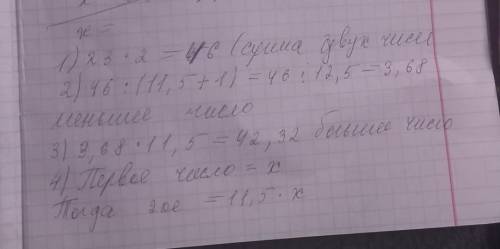 x =
1) 23 · 2 = 46 (сумма двух чисел
2) 46 : (11,5 + 1) = 46 : 12,5 = 3,68
меньшее число
3) 3,68 · 11,5 = 42,32 большее число
4) Первое число = x
Тогда 2ое = 11,5 · x